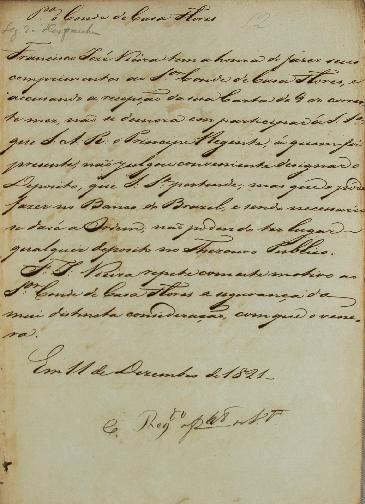 P.ª o Conde de Casa Flores
Francisco José Vieira tem a honra de fazer seus
comprimentos ao S.r Conde de Casa Flores, e
accusando a recepção da sua Carta de 9 do corren-
te mez, não se demora em participar a S. S.ª
que S. A. R. o Principe Regente, á quem foi
presente, não julgou conveniente designar o
Deposito, que S. S.ª pertende; mas que o pode
fazer no Banco do Brazil, e sendo necessario
se dará a Ordem, não podendo ter lugar
qualquer deposito no Thezouro Publico.
F. J. Vieira repete com este motivo ao
S.or Conde de Casa Flores a segurança da
mui distincta consideração, com que o vene-
ra.
Em 11 de Dezembro de 1821
Reg.do